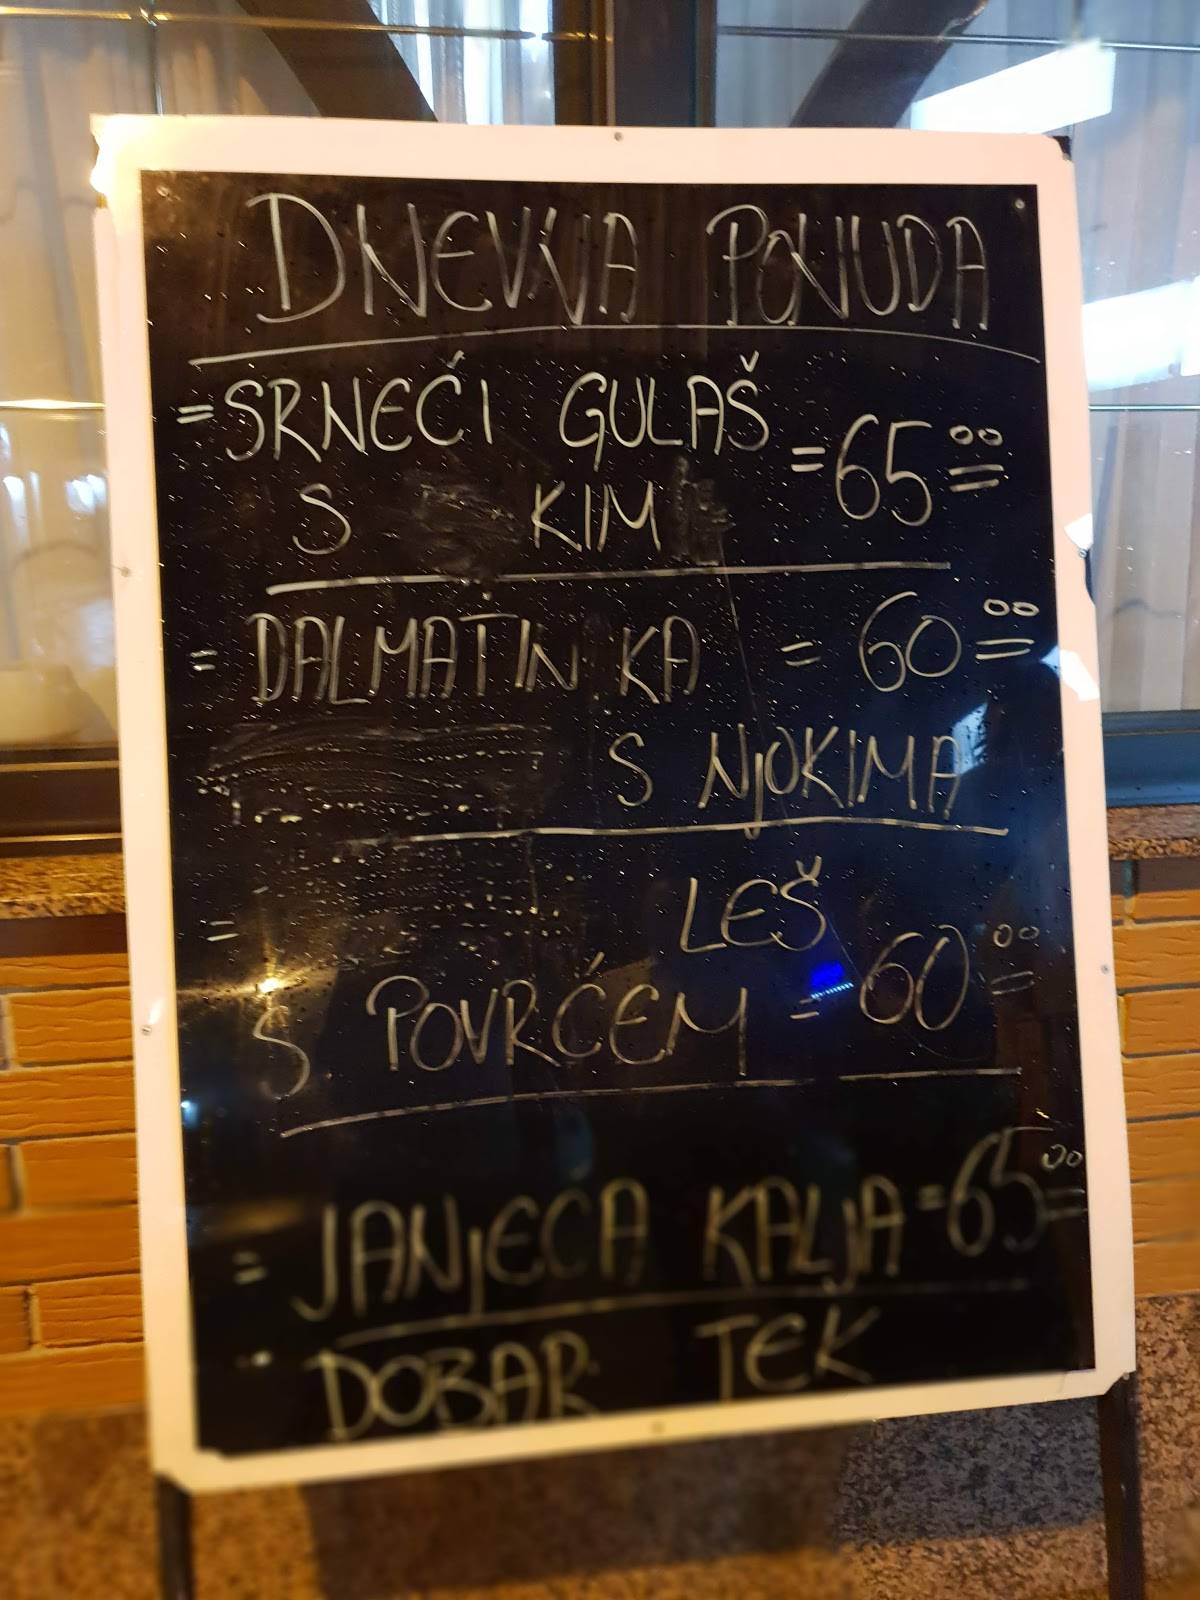 DNEVNA PONUDA
= SRNEĆI GULAŠ = 65 00
S KIM
= DALMATIN KA = 60 00
S NJOKIMA
= LEŠ
S POVRĆEM = 60 00
= JANJEĆA KALJA = 65 00
DOBAR TEK